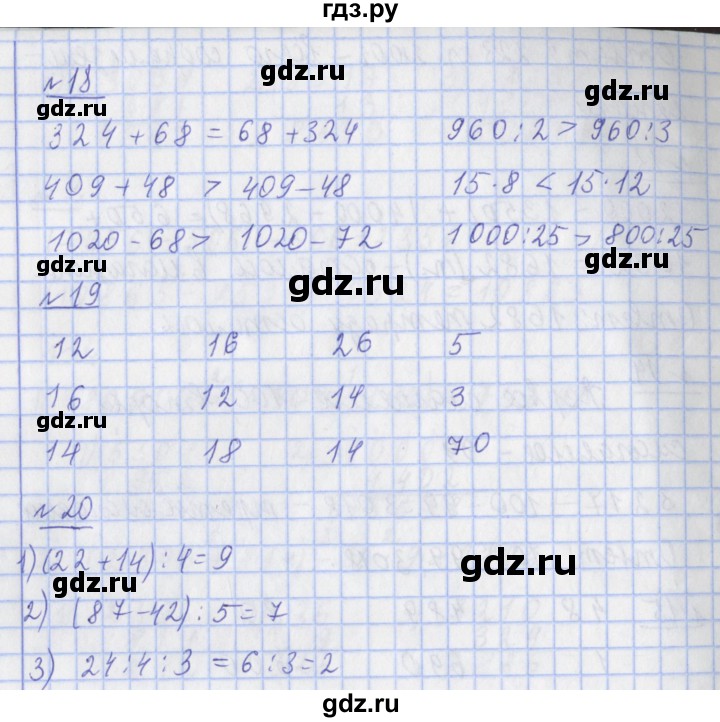 гдз.ру
№18
gdz.ru
gdz.ru
gdz.ru
324 + 68 = 68 + 324 960 : 2 > 960 : 3
409 + 48 > 409 - 48 15 · 8 < 15 · 12
1020 - 68 > 1020 - 72 1000 : 25 > 800 : 25
gdz.ru
gdz.ru
№19
gdz.ru
12 16 26 5
16 12 14 3
gdz.ru
gdz.ru
14 18 14 70
№20
gdz.ru
1) (22 + 14) : 4 = 9
gdz.ru
gdz.ru
2) (87 - 42) : 5 = 7
3) 24 : 4 : 3 = 6 : 3 = 2
gdz.ru